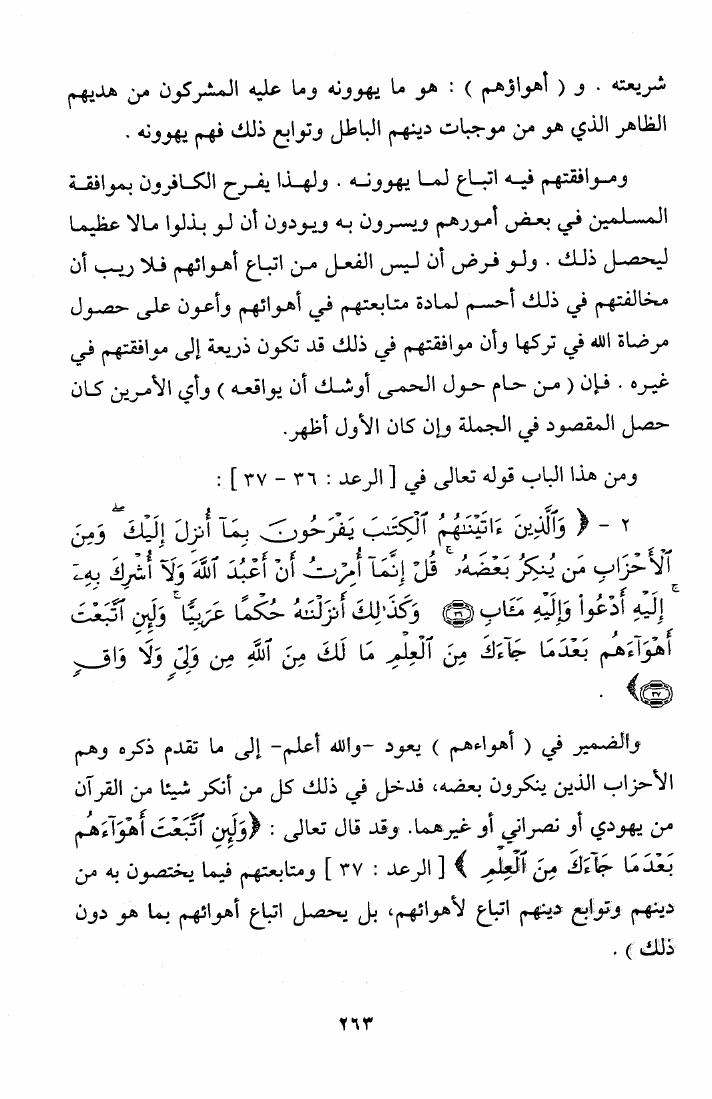 شريعته . و ( أهواؤهم ) : هو ما يهوونه وما عليه المشركون من هديهم
الظاهر الذي هو من موجبات دينهم الباطل وتوابع ذلك فهم يهوونه .
ومـوافقتهم فيـه اتبـاع لمـا يهوونـه . ولهـذا يفـرح الكـافرون بموافقـة
المسـلمين في بعـض أمـورهم ويسـرون بـه ويـودون أن لـو بـذلوا مـالا عظيمـا
ليحصـل ذلـك . ولـو فـرض أن لـيس الفعـل مـن اتبـاع أهـوائهم فـلا ريـب أن
مخالفتهم في ذلك أحسـم لمـادة متـابعتهم في أهـوائهم وأعـون علـى حصـول
مرضاة الله في تركها وأن موافقتهم في ذلك قد تكون ذريعة إلى موافقتهم في
غيـره . فـإن ( مـن حـام حـول الحمـى أوشـك أن يواقعـه ) وأي الأمـرين كـان
حصل المقصود في الجملة وإن كان الأول أظهر.
ومن هذا الباب قوله تعالى في [ الرعد : ٣٦ – ٣٧ ] :
٢ – ﴿ وَٱلَّذِينَ ءَاتَيْنَٰهُمُ ٱلْكِتَٰبَ يَفْرَحُونَ بِمَآ أُنزِلَ إِلَيْكَ ۖ وَمِنَ
ٱلْأَحْزَابِ مَن يُنكِرُ بَعْضَهُۥ ۚ قُلْ إِنَّمَآ أُمِرْتُ أَنْ أَعْبُدَ ٱللَّهَ وَلَآ أُشْرِكَ بِهِۦٓ ۚ
إِلَيْهِ أَدْعُوا۟ وَإِلَيْهِ مَـَٔابِ ﴿٣٦﴾ وَكَذَٰلِكَ أَنزَلْنَٰهُ حُكْمًا عَرَبِيًّا ۚ وَلَئِنِ ٱتَّبَعْتَ
أَهْوَآءَهُم بَعْدَمَا جَآءَكَ مِنَ ٱلْعِلْمِ مَا لَكَ مِنَ ٱللَّهِ مِن وَلِىٍّ وَلَا وَاقٍ
﴿٣٧﴾ ﴾ .
والضمير في ( أهواءهم ) يعود -والله أعلم- إلى ما تقدم ذكره وهم
الأحزاب الذين ينكرون بعضه، فدخل في ذلك كل من أنكر شيئا من القرآن
من يهودي أو نصراني أو غيرهما. وقد قال تعالى : ﴿وَلَئِنِ ٱتَّبَعْتَ أَهْوَآءَهُم
بَعْدَمَا جَآءَكَ مِنَ ٱلْعِلْمِ ﴾ [ الرعد : ٣٧ ] ومتابعتهم فيما يختصون به من
دينهم وتوابع دينهم اتباع لأهوائهم، بل يحصل اتباع أهوائهم بما هو دون
ذلك ) .
٢٦٣